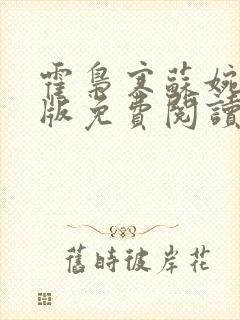 霍梟寒蘇婉
版免費閱讀
舊時彼岸花